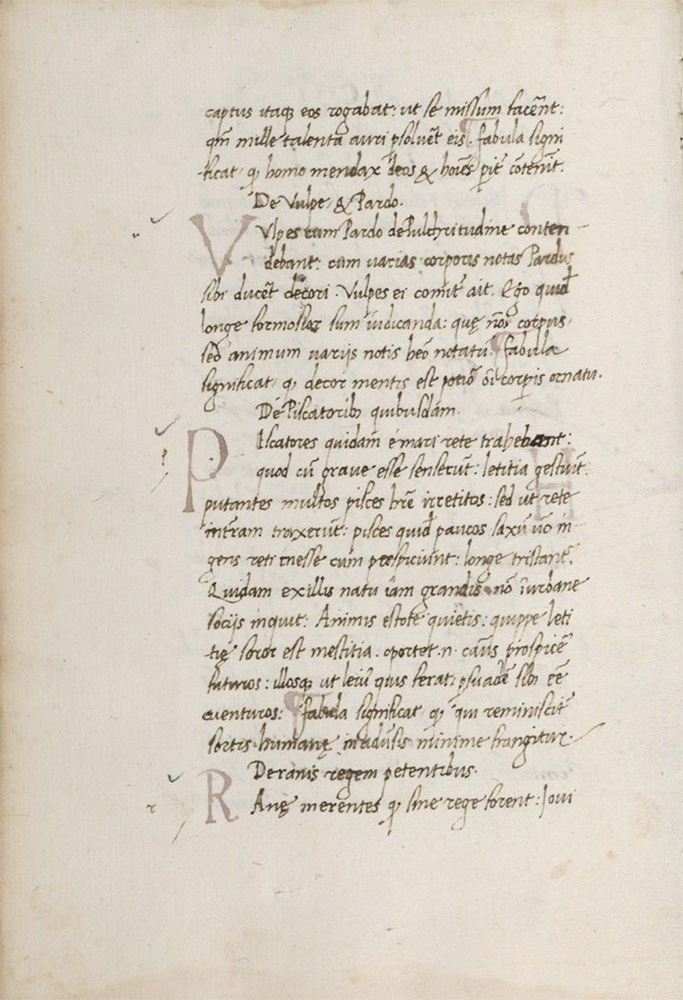 captus itaqꝫ eos rogabat: ut se missum facēnt:
qm̄ mille talenta auri psoluēt eis. fabula signi
ficat q̨ homo mendax deos & hoīes p̄it cōtēnit.
De Vulpe & Pardo.
Vulpes cum Pardo de Pulchritudine conten
debant: cum varias corporis notas Pardus
sibi ducēt decori. Vulpes ei comit̄ ait. Ego quid̄
longe formosior sum iudicanda: quę nō corpus
sed animum varijs notis heō notatū. fabula
significat q̨ decor mentis est potiō corpis ornatu.
De Piscatoribꝫ quibusdam.
Piscatores quidam é mari rete trahebant:
quod cū grave esse senserūt: letitia gestiūt
putantes multos pisces hr̄e irretitos: sed ut rete
in tr̄ram traxerūt: pisces quid̄ paucos saxū v̄o in
gens reti inesse cum prospiciunt: longe tristant̄.
Quidam ex illis natu iam grandis nō īurbane
socijs inquit: Animis estote quietis: quippe leti
tię soror est mestitia. oportet .n. casus prospicē
futuros: illosqꝫ ut leviū quis ferat: psuadē sibi ēē
eventuros: fabula significat q̨ qui reminiscit̄
sortis humanę in adūsis minime frangitur.
De ranis regem petentibus.
Ranę merentes q̨ sine rege forent: Iovi